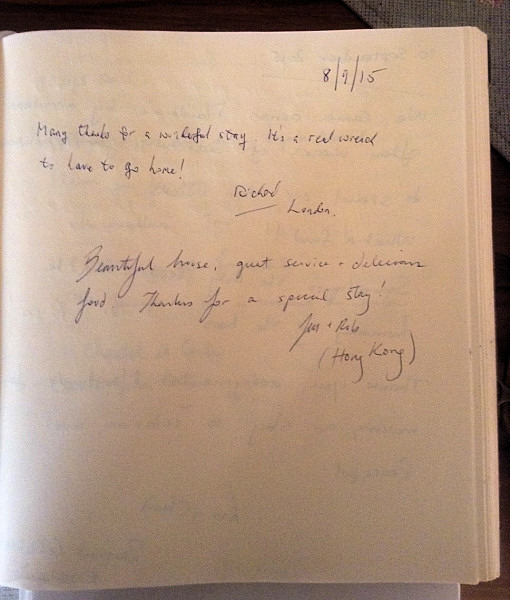 8/9/15
Many thanks for a wonderful stay. It's a real wrench
to have to go home!
Richard
London.
Beautiful house, great service + delicious
food Thanks for a special stay!
+ Rob
(Hong Kong)